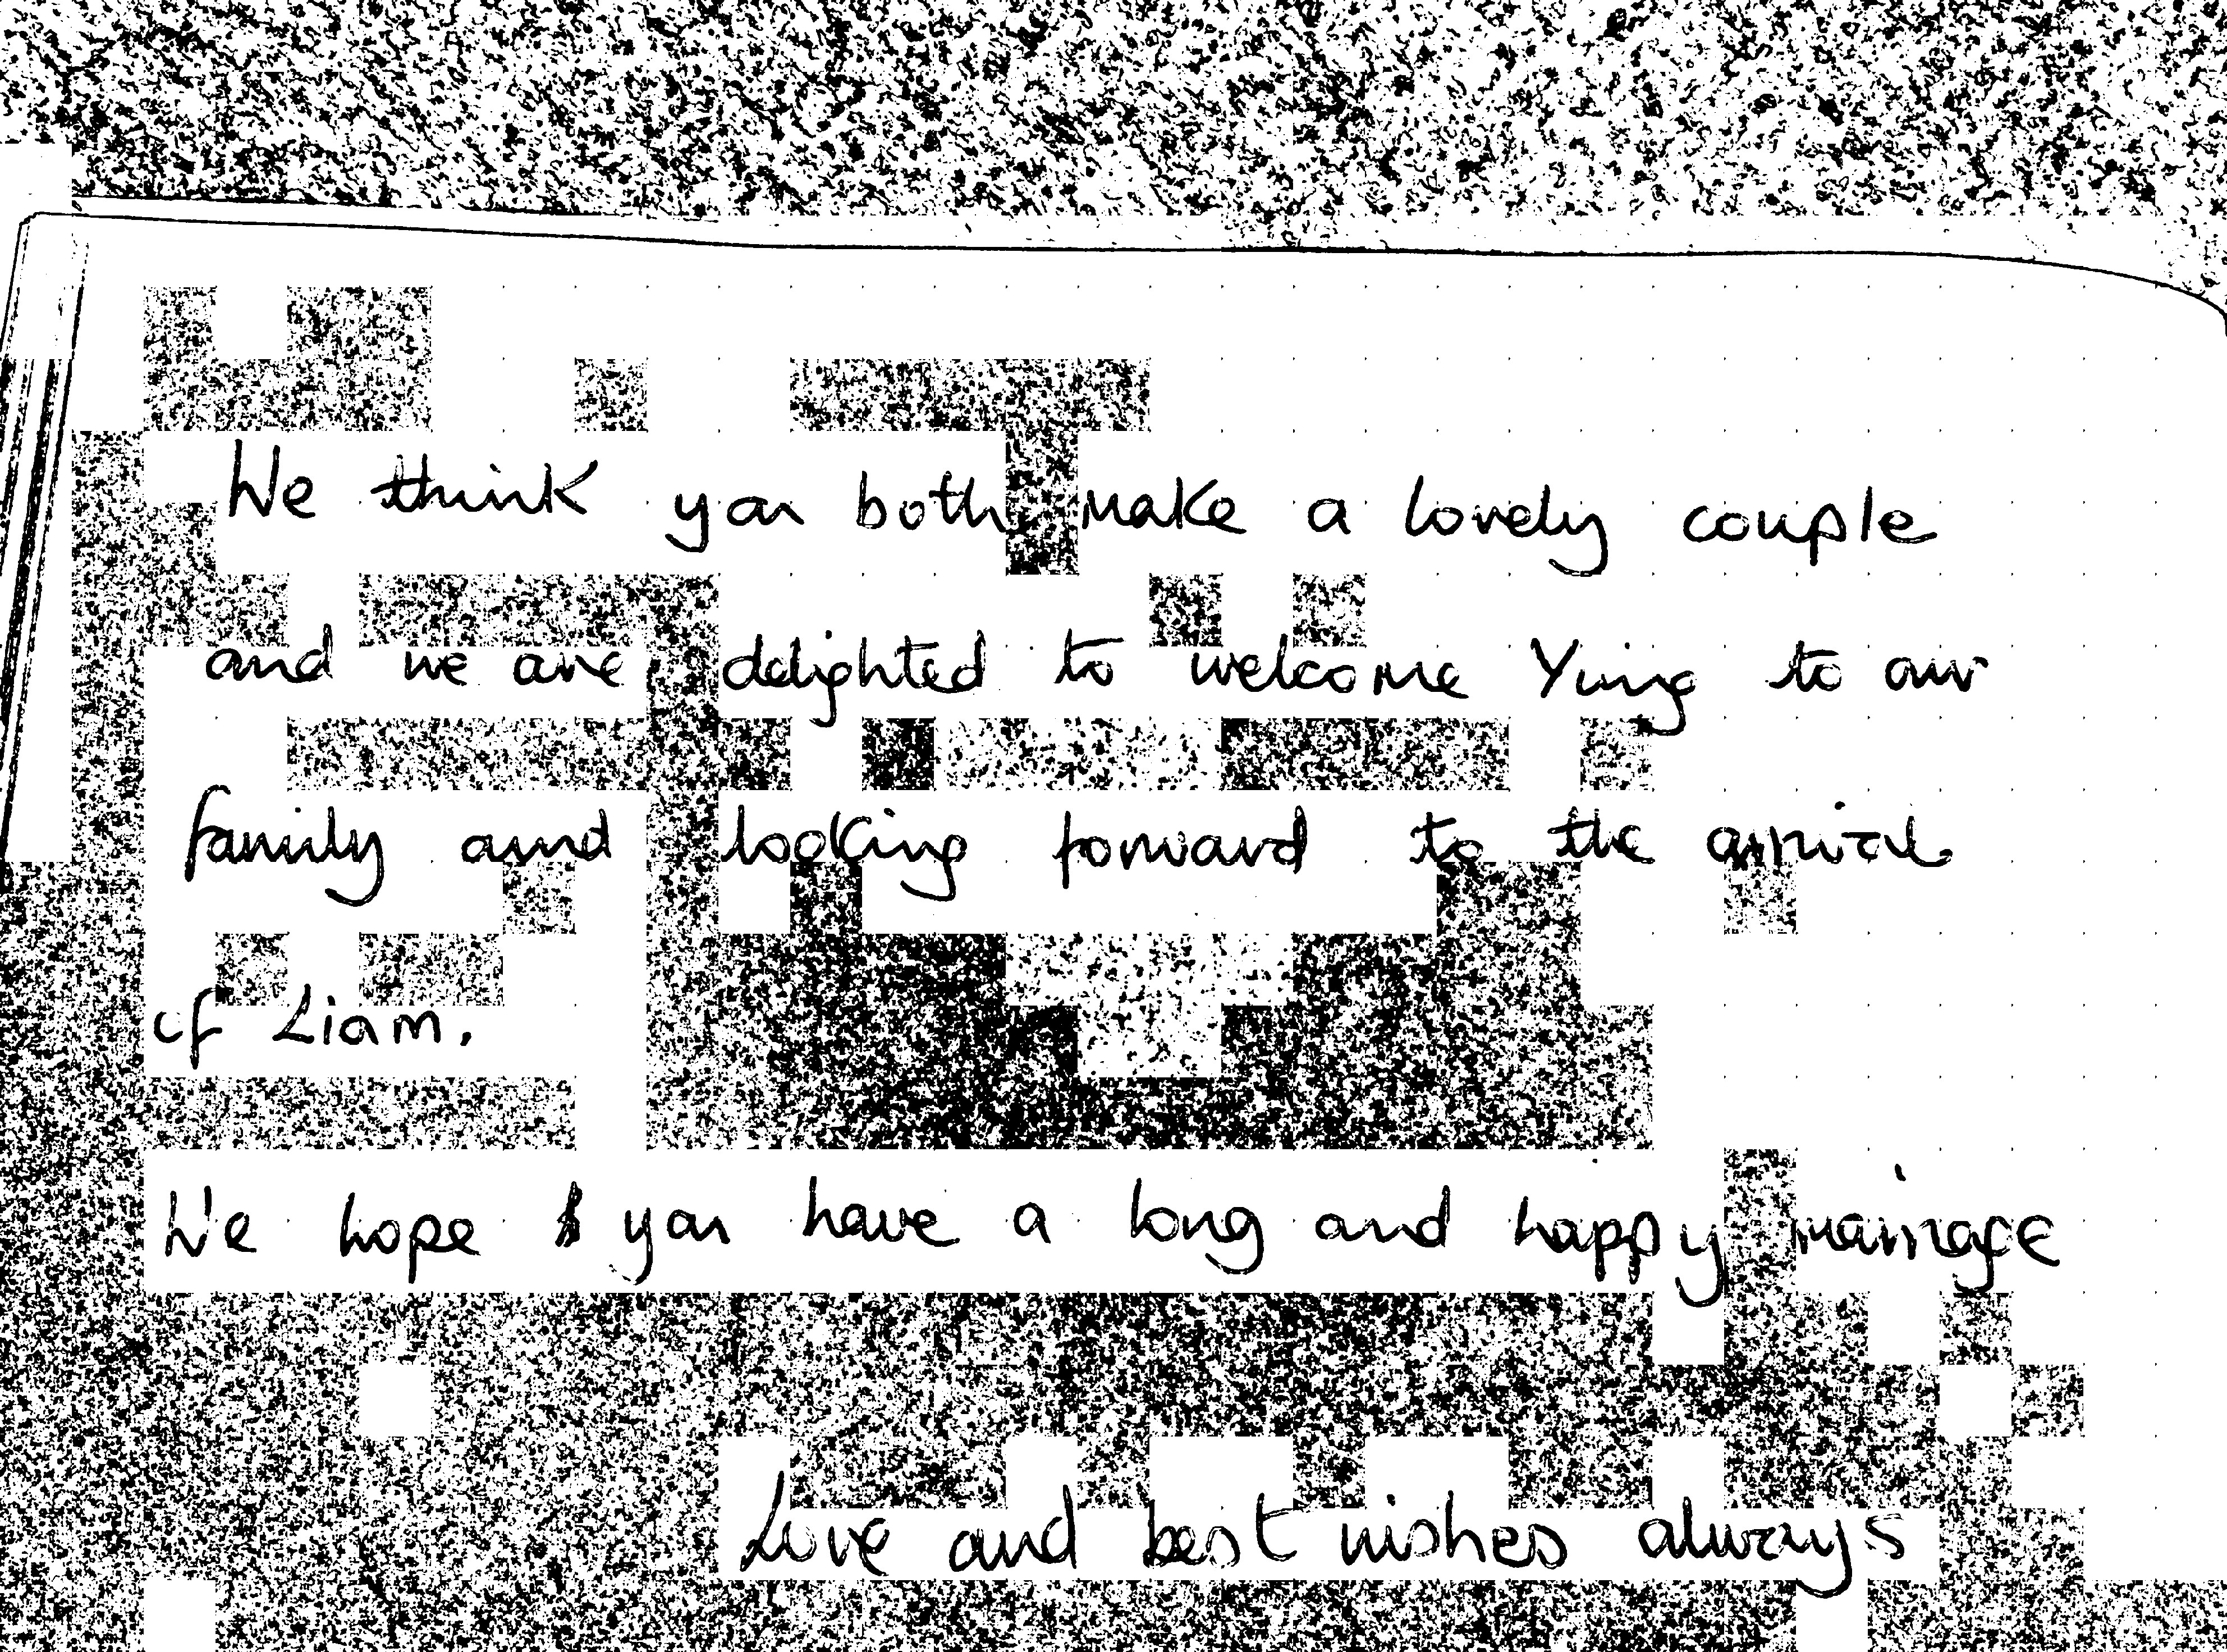 We think you both make a lovely couple
and we are delighted to welcome Ying to our
family and looking forward to the arrival
of Liam.
We hope you have a long and happy marriage
Love and best wishes always